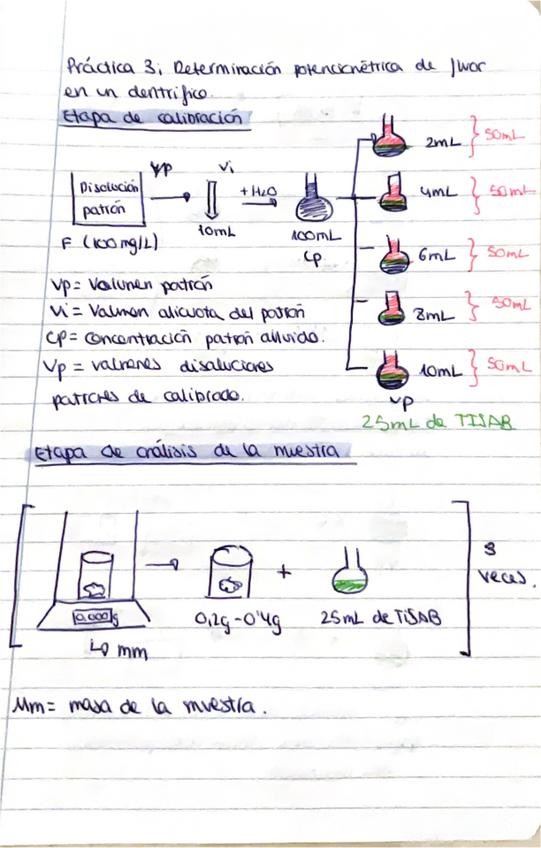 Práctica 3: Determinación potenciométrica de flúor
en un dentrífico.
Etapa de calibración
Vp
Vi
+ H2O
Disolución
patrón
10mL
100mL
F (100mg/L)
Cp
2mL } 50mL
4mL } 50mL
6mL } 50mL
8mL } 50mL
10mL } 50mL
Vp
25mL de TISAB
Vp = Volumen patrón
Vi = Volumen alicuota del patrón
Cp = Concentración patrón diluido.
Vp = volumenes disoluciones
patrones de calibrado.
Etapa de análisis de la muestra
0.000g
+
3
veces.
0,2g - 0'4g
25mL de TISAB
mm
Mm = masa de la muestra.